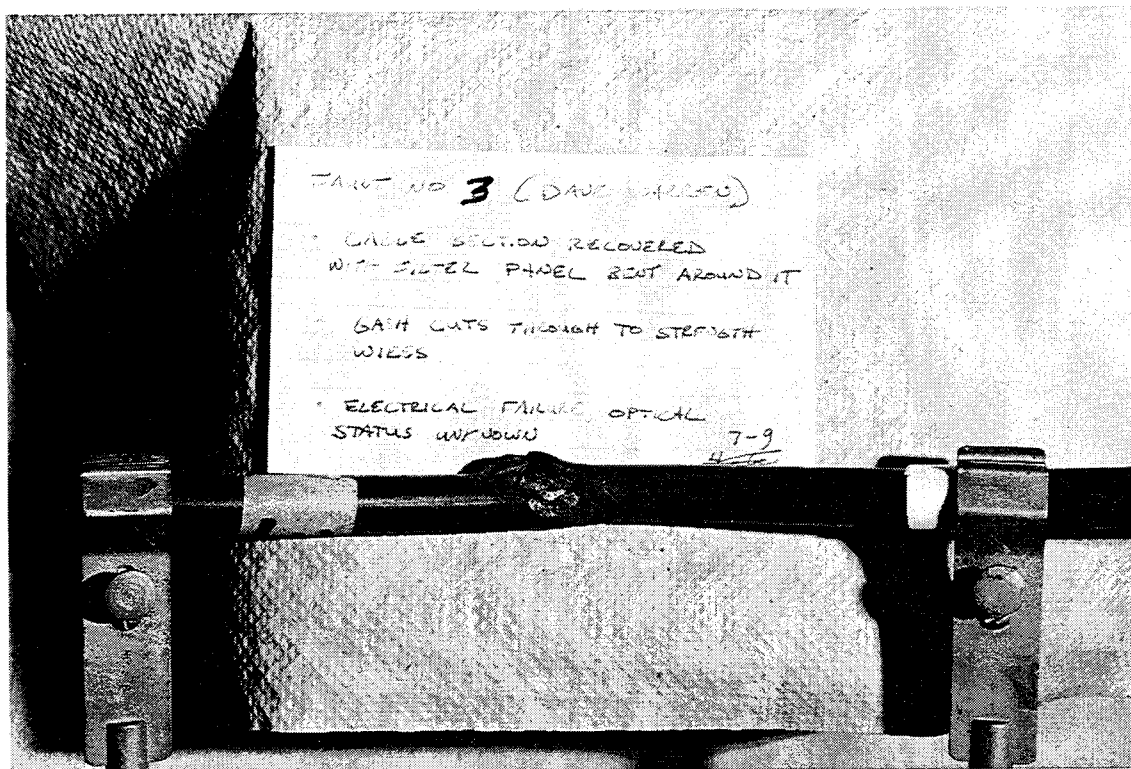 NO 3 (DAVE WARREN)
· CABLE SECTION RECOVERED
WITH FILTER PANEL BENT AROUND IT
GASH CUTS THROUGH TO STRENGTH
WIRES
· ELECTRICAL FAILURE OPTICAL
STATUS UNKNOWN
7-9